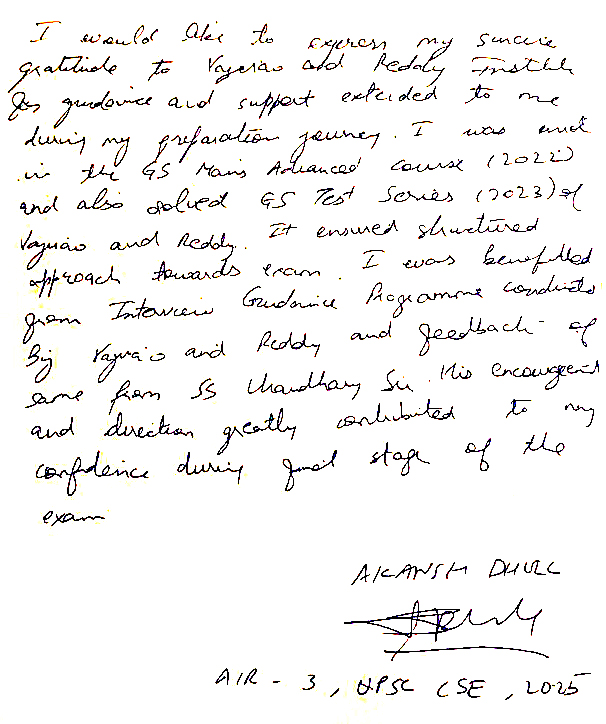 I would like to express my sincere
gratitude to Vajirao and Reddy Institute
for guidance and support extended to me
during my preparation journey. I was
in the GS Mains Advanced course (2022)
and also solved GS Test Series (2023) of
Vajirao and Reddy. It ensured structured
approach towards exam. I was benefitted
from Interview Guidance Programme conducted
By Vajirao and Reddy and feedback of
same from SS Chaudhary Sir. His encouragement
and direction greatly contributed to my
confidence during final stage of the
exam
AKANSH DHULL
AIR - 3, UPSC CSE, 2025